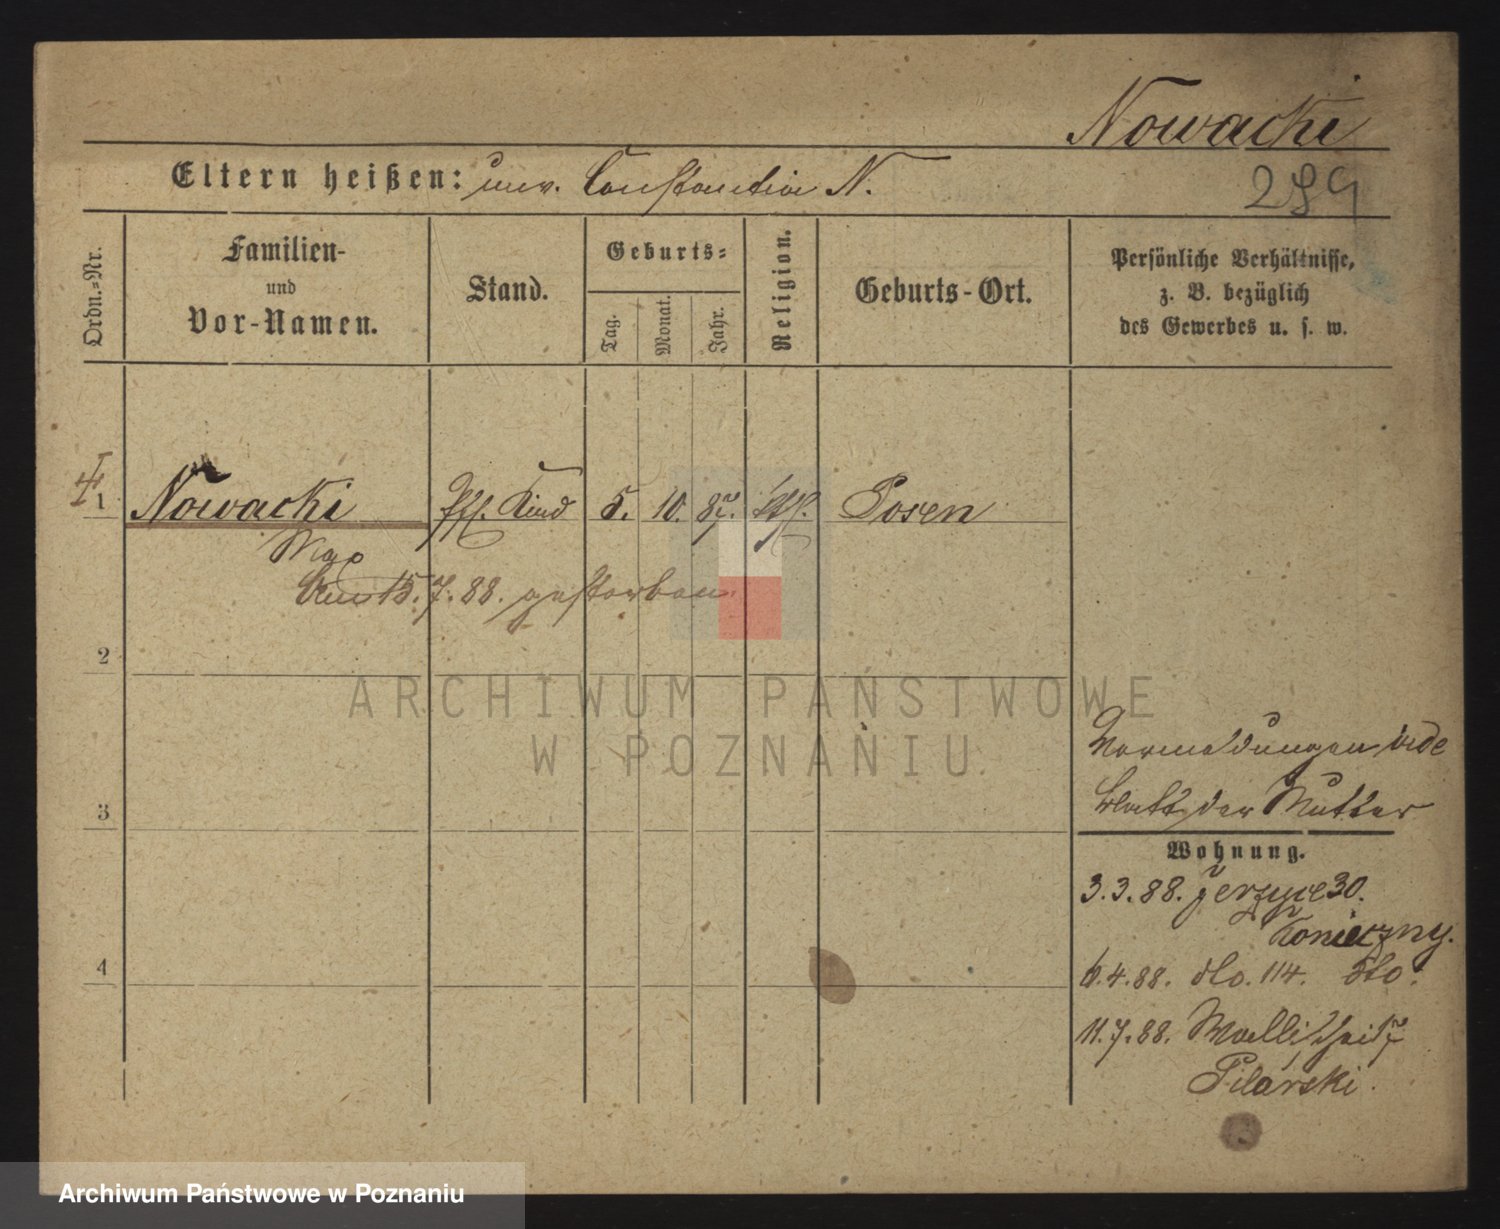 Nowacki
Eltern heißen: unv. Constantia N.
289
Ordn.=Nr.
Familien-
und
Vor-Namen.
Stand.
Geburts=
Tag.
Monat.
Jahr.
Religion.
Geburts-Ort.
Persönliche Verhältnisse,
z. B. bezüglich
des Gewerbes u. s. w.
1 Nowacki Kind 5. 10. 87. kth. Posen
Max
15.7.88. gestorben
2
3
4
Vermeldungen vide
Blatt der Mutter
Wohnung.
3.3.88. Jerzyce 30.
Konieczny.
6.4.88. dto. 114. dto.
11.7.88. Wallischei 7
Pilarski.
ARCHIWUM PAŃSTWOWE
W POZNANIU
Archiwum Państwowe w Poznaniu